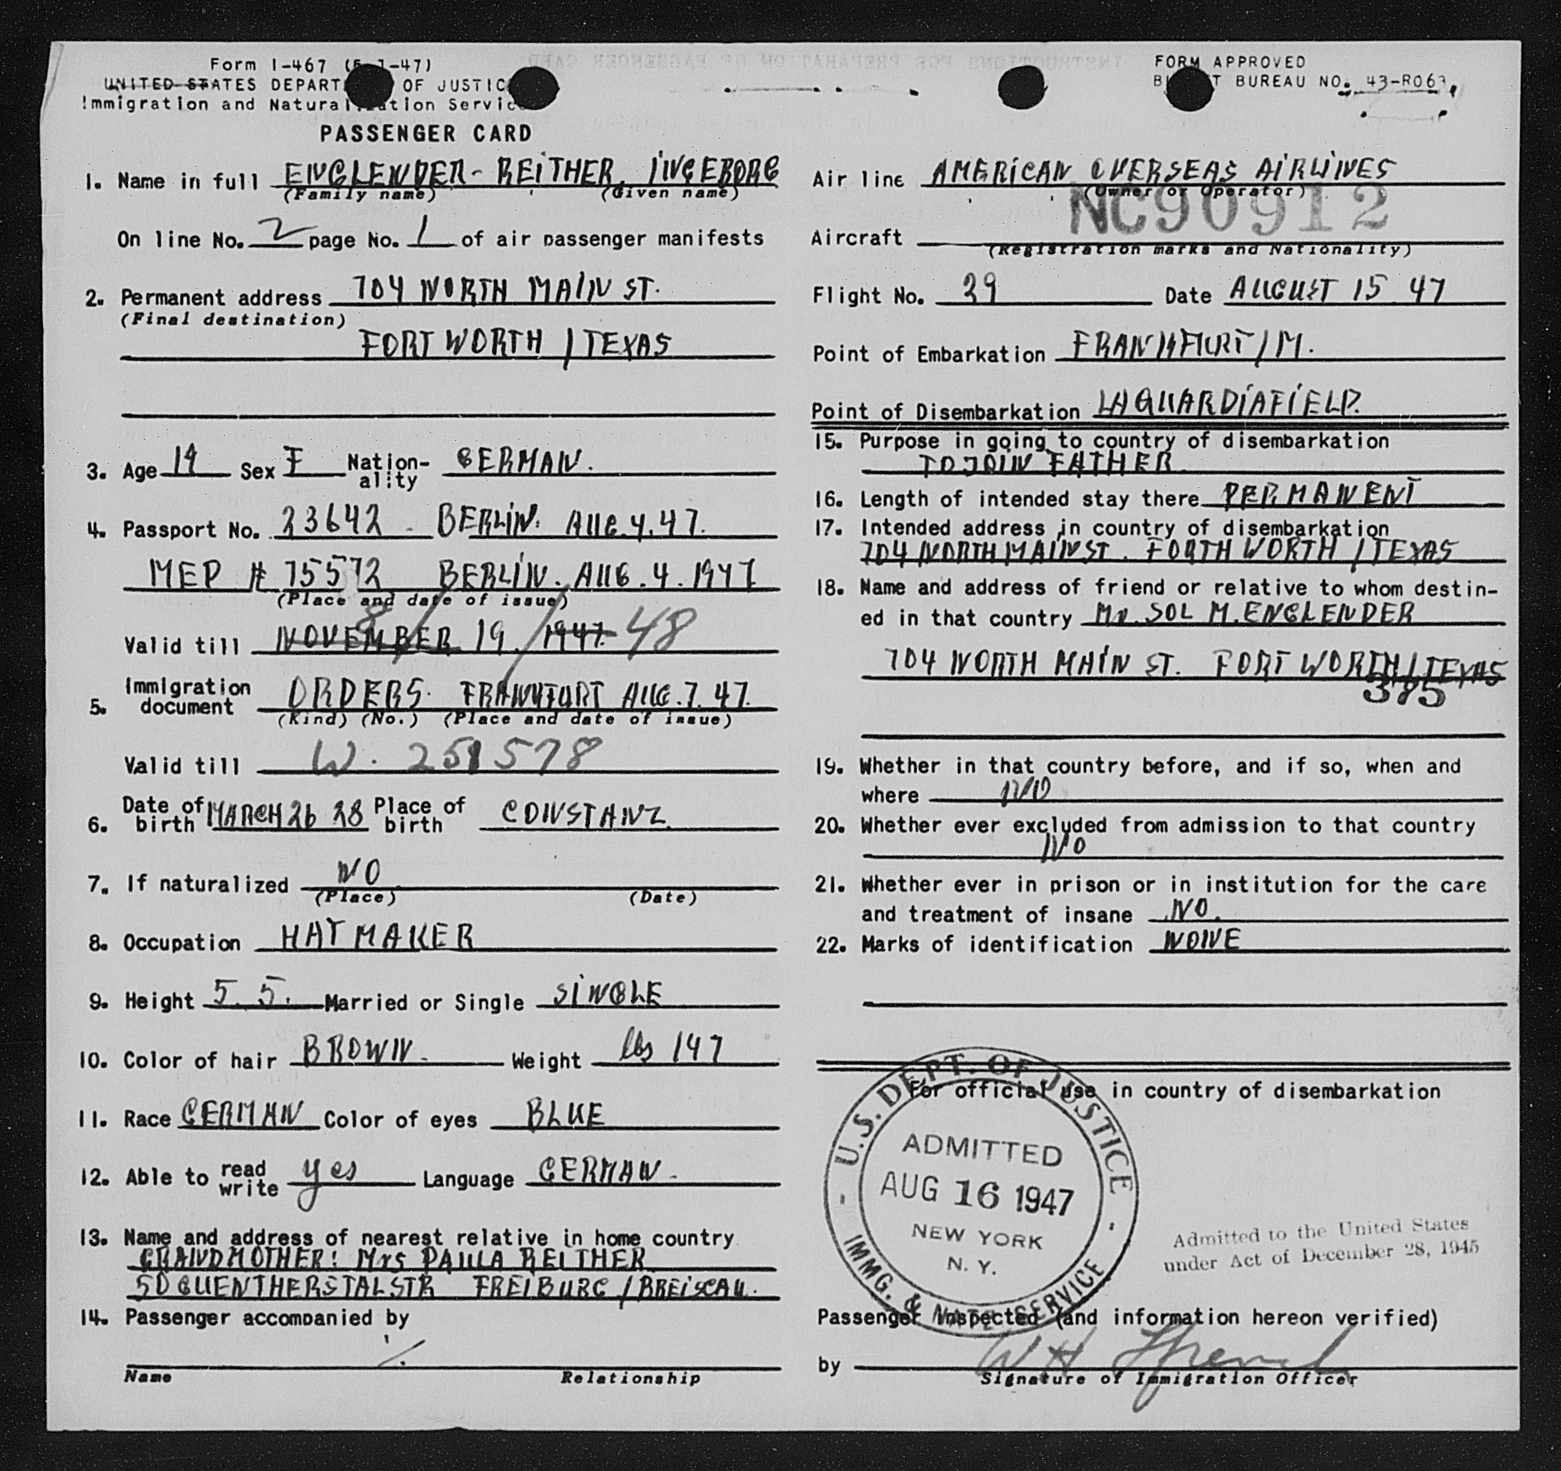 Form I-467 (5-1-47)
UNITED STATES DEPARTMENT OF JUSTICE
Immigration and Naturalization Service
PASSENGER CARD
1. Name in full ENGLENDER-REITHER, INGEBORG
(Family name) (Given name)
On line No. 2 page No. 1 of air passenger manifests
2. Permanent address 704 NORTH MAIN ST.
(Final destination)
FORT WORTH / TEXAS
3. Age 19 Sex F Nation-ality GERMAN.
4. Passport No. 23642 - BERLIN. AUG. 4. 47.
MEP # 75572 BERLIN. AUG. 4. 1947
(Place and date of issue)
Valid till NOVEMBER 19, 1947. 8 / / 48
5. Immigration document ORDERS. FRANKFURT AUG. 7. 47.
(Kind) (No.) (Place and date of issue)
Valid till W. 251578
6. Date of birth MARCH 26 28 Place of birth CONSTANZ
7. If naturalized NO
(Place) (Date)
8. Occupation HAT MAKER
9. Height 5. 5. Married or Single SINGLE
10. Color of hair BROWN. Weight lbs 147
11. Race GERMAN Color of eyes BLUE
12. Able to read write yes Language GERMAN.
13. Name and address of nearest relative in home country
GRANDMOTHER: Mrs PAULA REITHER
50 GUENTHERSTALSTR FREIBURG / BREISGAU.
14. Passenger accompanied by
Name Relationship
FORM APPROVED
BUDGET BUREAU NO. 43-R063.
Air line AMERICAN OVERSEAS AIRLINES
(Owner or Operator)
Aircraft NC90912
(Registration marks and Nationality)
Flight No. 29 Date AUGUST 15 47
Point of Embarkation FRANKFURT/M.
Point of Disembarkation LAGUARDIAFIELD.
15. Purpose in going to country of disembarkation
TO JOIN FATHER
16. Length of intended stay there PERMANENT
17. Intended address in country of disembarkation
704 NORTH MAIN ST. FORTH WORTH / TEXAS
18. Name and address of friend or relative to whom destin-
ed in that country Mr. SOL M. ENGLENDER
704 NORTH MAIN ST. FORT WORTH / TEXAS
385
19. Whether in that country before, and if so, when and
where NO
20. Whether ever excluded from admission to that country
NO
21. Whether ever in prison or in institution for the care
and treatment of insane NO.
22. Marks of identification NONE
For official use in country of disembarkation
U.S. DEPT. OF JUSTICE
ADMITTED
AUG 16 1947
NEW YORK
N. Y.
IMMG. & NATZ. SERVICE
Admitted to the United States
under Act of December 28, 1945
Passenger inspected (and information hereon verified)
by
Signature of Immigration Officer